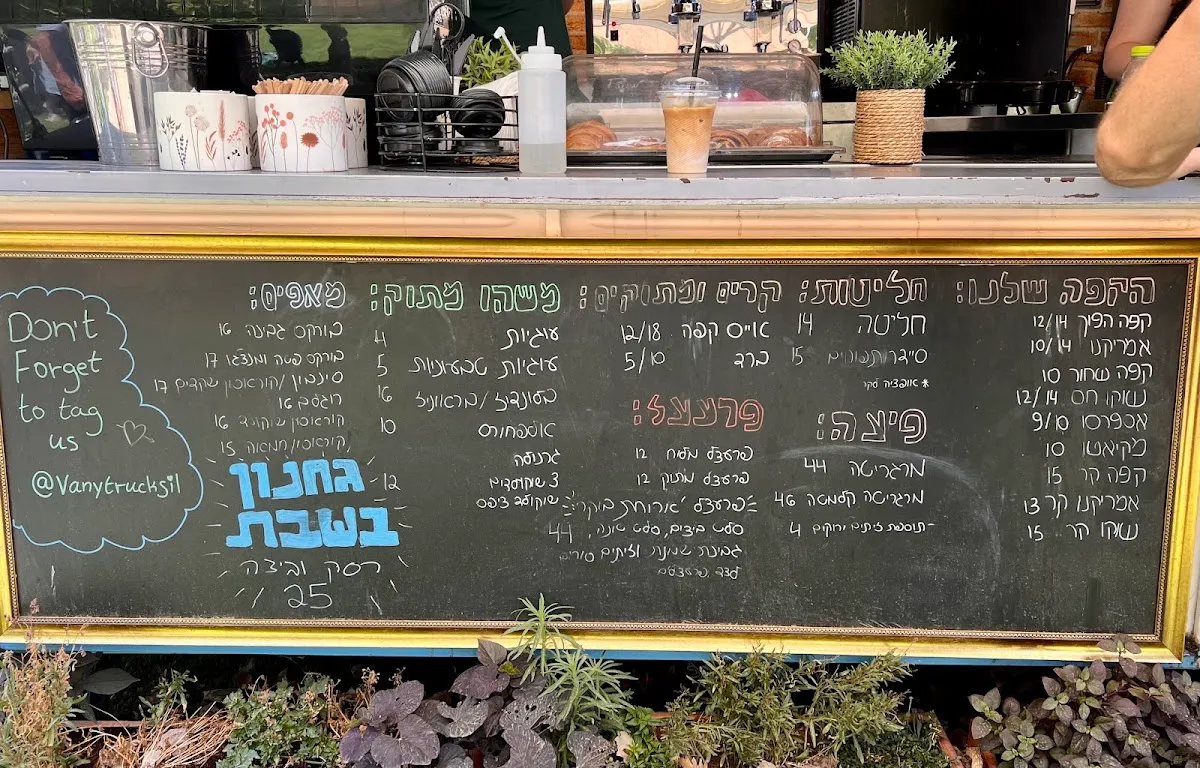 הקפה שלנו:
קפה הפוך 12/14
אמריקנו 10/14
קפה שחור 10
שוקו חם 12/14
אספרסו 9/10
מקיאטו 10
קפה קר 15
אמריקנו קר 13
שוקו קר 15
חליטות:
חליטה 14
סיידר תפוחים 15
* אופציה לקר
פיצה:
מרגריטה 44
מרגריטה קלמטה 46
-תוספת זיתים ירוקים 4
קרים ומתוקים:
אייס קפה 12/18
ברד 5/10
פרעצל:
פרעצל מלוח 12
פרעצל מתוק 12
פרעצל ארוחת בוקר
סלט ביצים, סלט טונה, 44
גבינת שמנת וזיתים
לצד פרעצלים
משהו מתוק:
עוגיות 4
עוגיות טבעוניות 5
בלונדיז/בראוניז 16
אלפחורס 10
גרנולה
3 שוקולדים 12
שוקולד ציפס
מאפים:
בורקס גבינה 16
בורקס פטה ומנגו 17
סינבון/קוראסון שקדים 17
רוגלס 16
קוראסון שוקולד 16
קוראסון חמאה 15
גחנון
בשבת
רסק וביצה
25
Don't
Forget
to tag
us
@Vanytrucksil